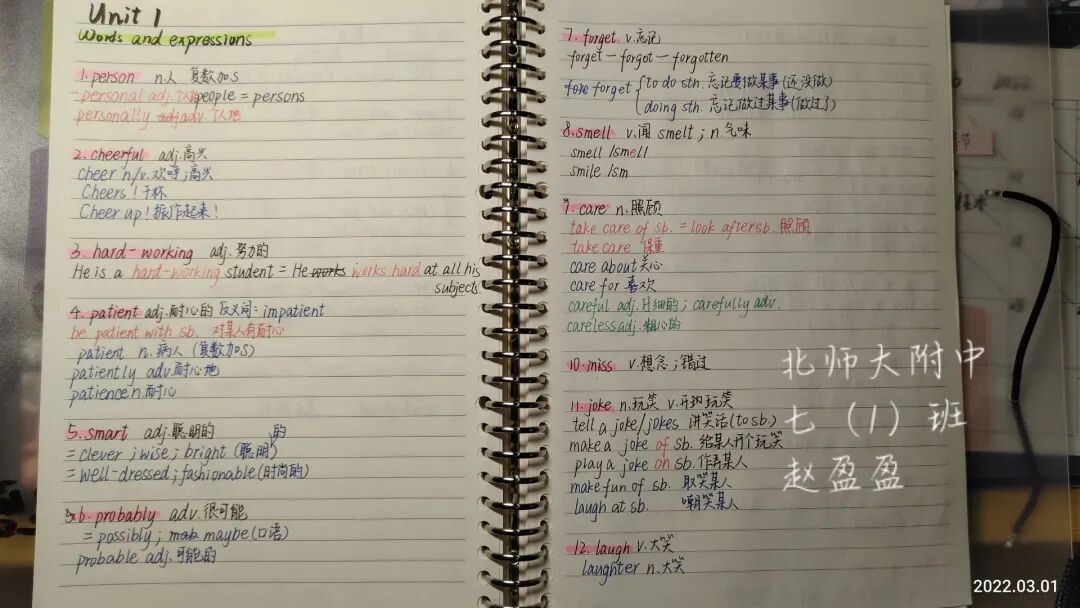 Unit 1
Words and expressions
1. person n.人 复数加S
personal adj.个人的 people = persons
personally adj adv.个人地
2. cheerful adj.高兴
cheer n/v.欢呼;高兴
Cheers!干杯
Cheer up!振作起来!
3. hard-working adj.努力的
He is a hard-working student = He works works hard at all his
subjects
4. patient adj.耐心的 反义词:impatient
be patient with sb. 对某人有耐心
patient n.病人(复数加S)
patiently adv.耐心地
patience n.耐心
5. smart adj.聪明的
= clever ; wise ; bright (聪明的)
= well-dressed ; fashionable (时尚的)
6. probably adv.很可能
= possibly ; mab maybe (口语)
probable adj.可能的
7. forget v.忘记
forget — forgot — forgotten
forget to do sth. 忘记要做某事(还没做)
doing sth. 忘记做过某事(做过了)
8. smell v.闻 smelt ; n.气味
smell /smell
smile /sm
9. care n.照顾
take care of sb. = look after sb. 照顾
take care 保重
care about 关心
care for 喜欢
careful adj.仔细的 ; carefully adv.
careless adj.粗心的
10. miss v.想念;错过
11. joke n.玩笑 v.开玩笑
tell a joke/jokes 讲笑话(to sb.)
make a joke of sb. 给某人开个玩笑
play a joke on sb. 作弄某人
make fun of sb. 取笑某人
laugh at sb. 嘲笑某人
12. laugh v.大笑
laughter n.大笑
北师大附中
七(1)班
赵盈盈
2022.03.01